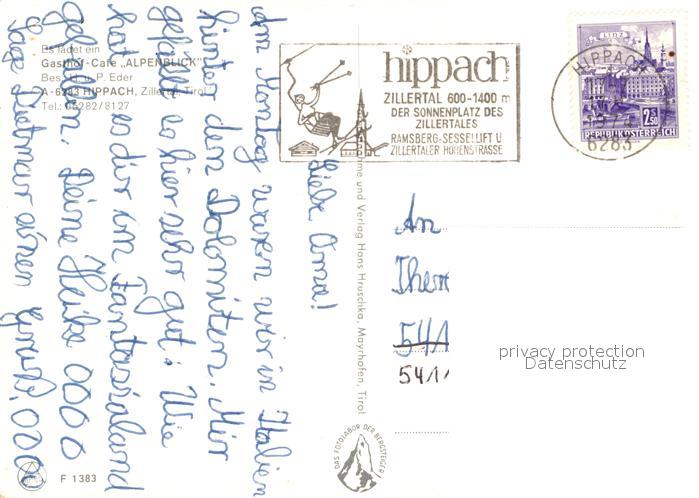 Es ladet ein
Gasthof-Cafe „ALPENBLICK"
Bes. H. u. P. Eder
A-6283 HIPPACH, Zillertal Tirol
Tel.: 05282/8127
Liebe Oma!
Am Montag waren wir in Italien
hinter den Dolomiten. Mir
gefällt es hier sehr gut. Wie
hat es dir im Fantasialand
gefallen. Deine Heike 000 0
Sage Dietmar einen Gruß. 000
hippach
ZILLERTAL 600-1400 m
DER SONNENPLATZ DES
ZILLERTALES
RAMSBERG-SESSELLIFT U
ZILLERTALER HÖHENSTRASSE
LINZ
2.50
REPUBLIK ÖSTERREICH
HIPPACH
6283
und Verlag Hans Hruschka, Mayrhofen, Tirol
An
541
5411
privacy protection
Datenschutz
DAS FOTOLABOR DER BERGSTEIGER
F 1383